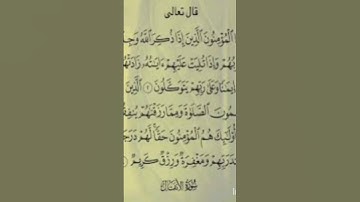 قال تعالى
ا ٱلْمُؤْمِنُونَ ٱلَّذِينَ إِذَا ذُكِرَ ٱللَّهُ وَجِلَ
بُهُمْ وَإِذَا تُلِيَتْ عَلَيْهِمْ ءَايَٰتُهُۥ زَادَتْهُ
يمَٰنًا وَعَلَىٰ رَبِّهِمْ يَتَوَكَّلُونَ ٢ ٱلَّذِينَ
يمُونَ ٱلصَّلَوٰةَ وَمِمَّا رَزَقْنَٰهُمْ يُنفِقُ
أُو۟لَٰٓئِكَ هُمُ ٱلْمُؤْمِنُونَ حَقًّا لَّهُمْ دَرَجَ
ندَ رَبِّهِمْ وَمَغْفِرَةٌ وَرِزْقٌ كَرِيمٌ
سورة الأنفال